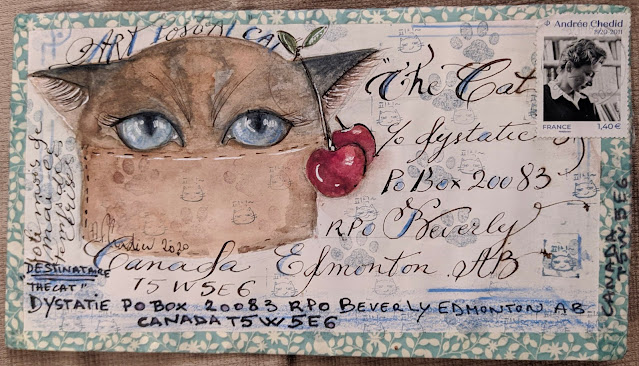 ART POSTAL
Andrée Chedid
1920-2011
FRANCE
1,40 €
"The Cat
c/o dystatic
Po Box 20083
RPO Beverly
Canada Edmonton. AB
T5W5E6
2020
DESTINATAIRE
THECAT"
DYSTATIE PO BOX 20083 RPO BEVERLY EDMONTON AB
CANADA T5W 5E6
CANADA
T5W 5E6